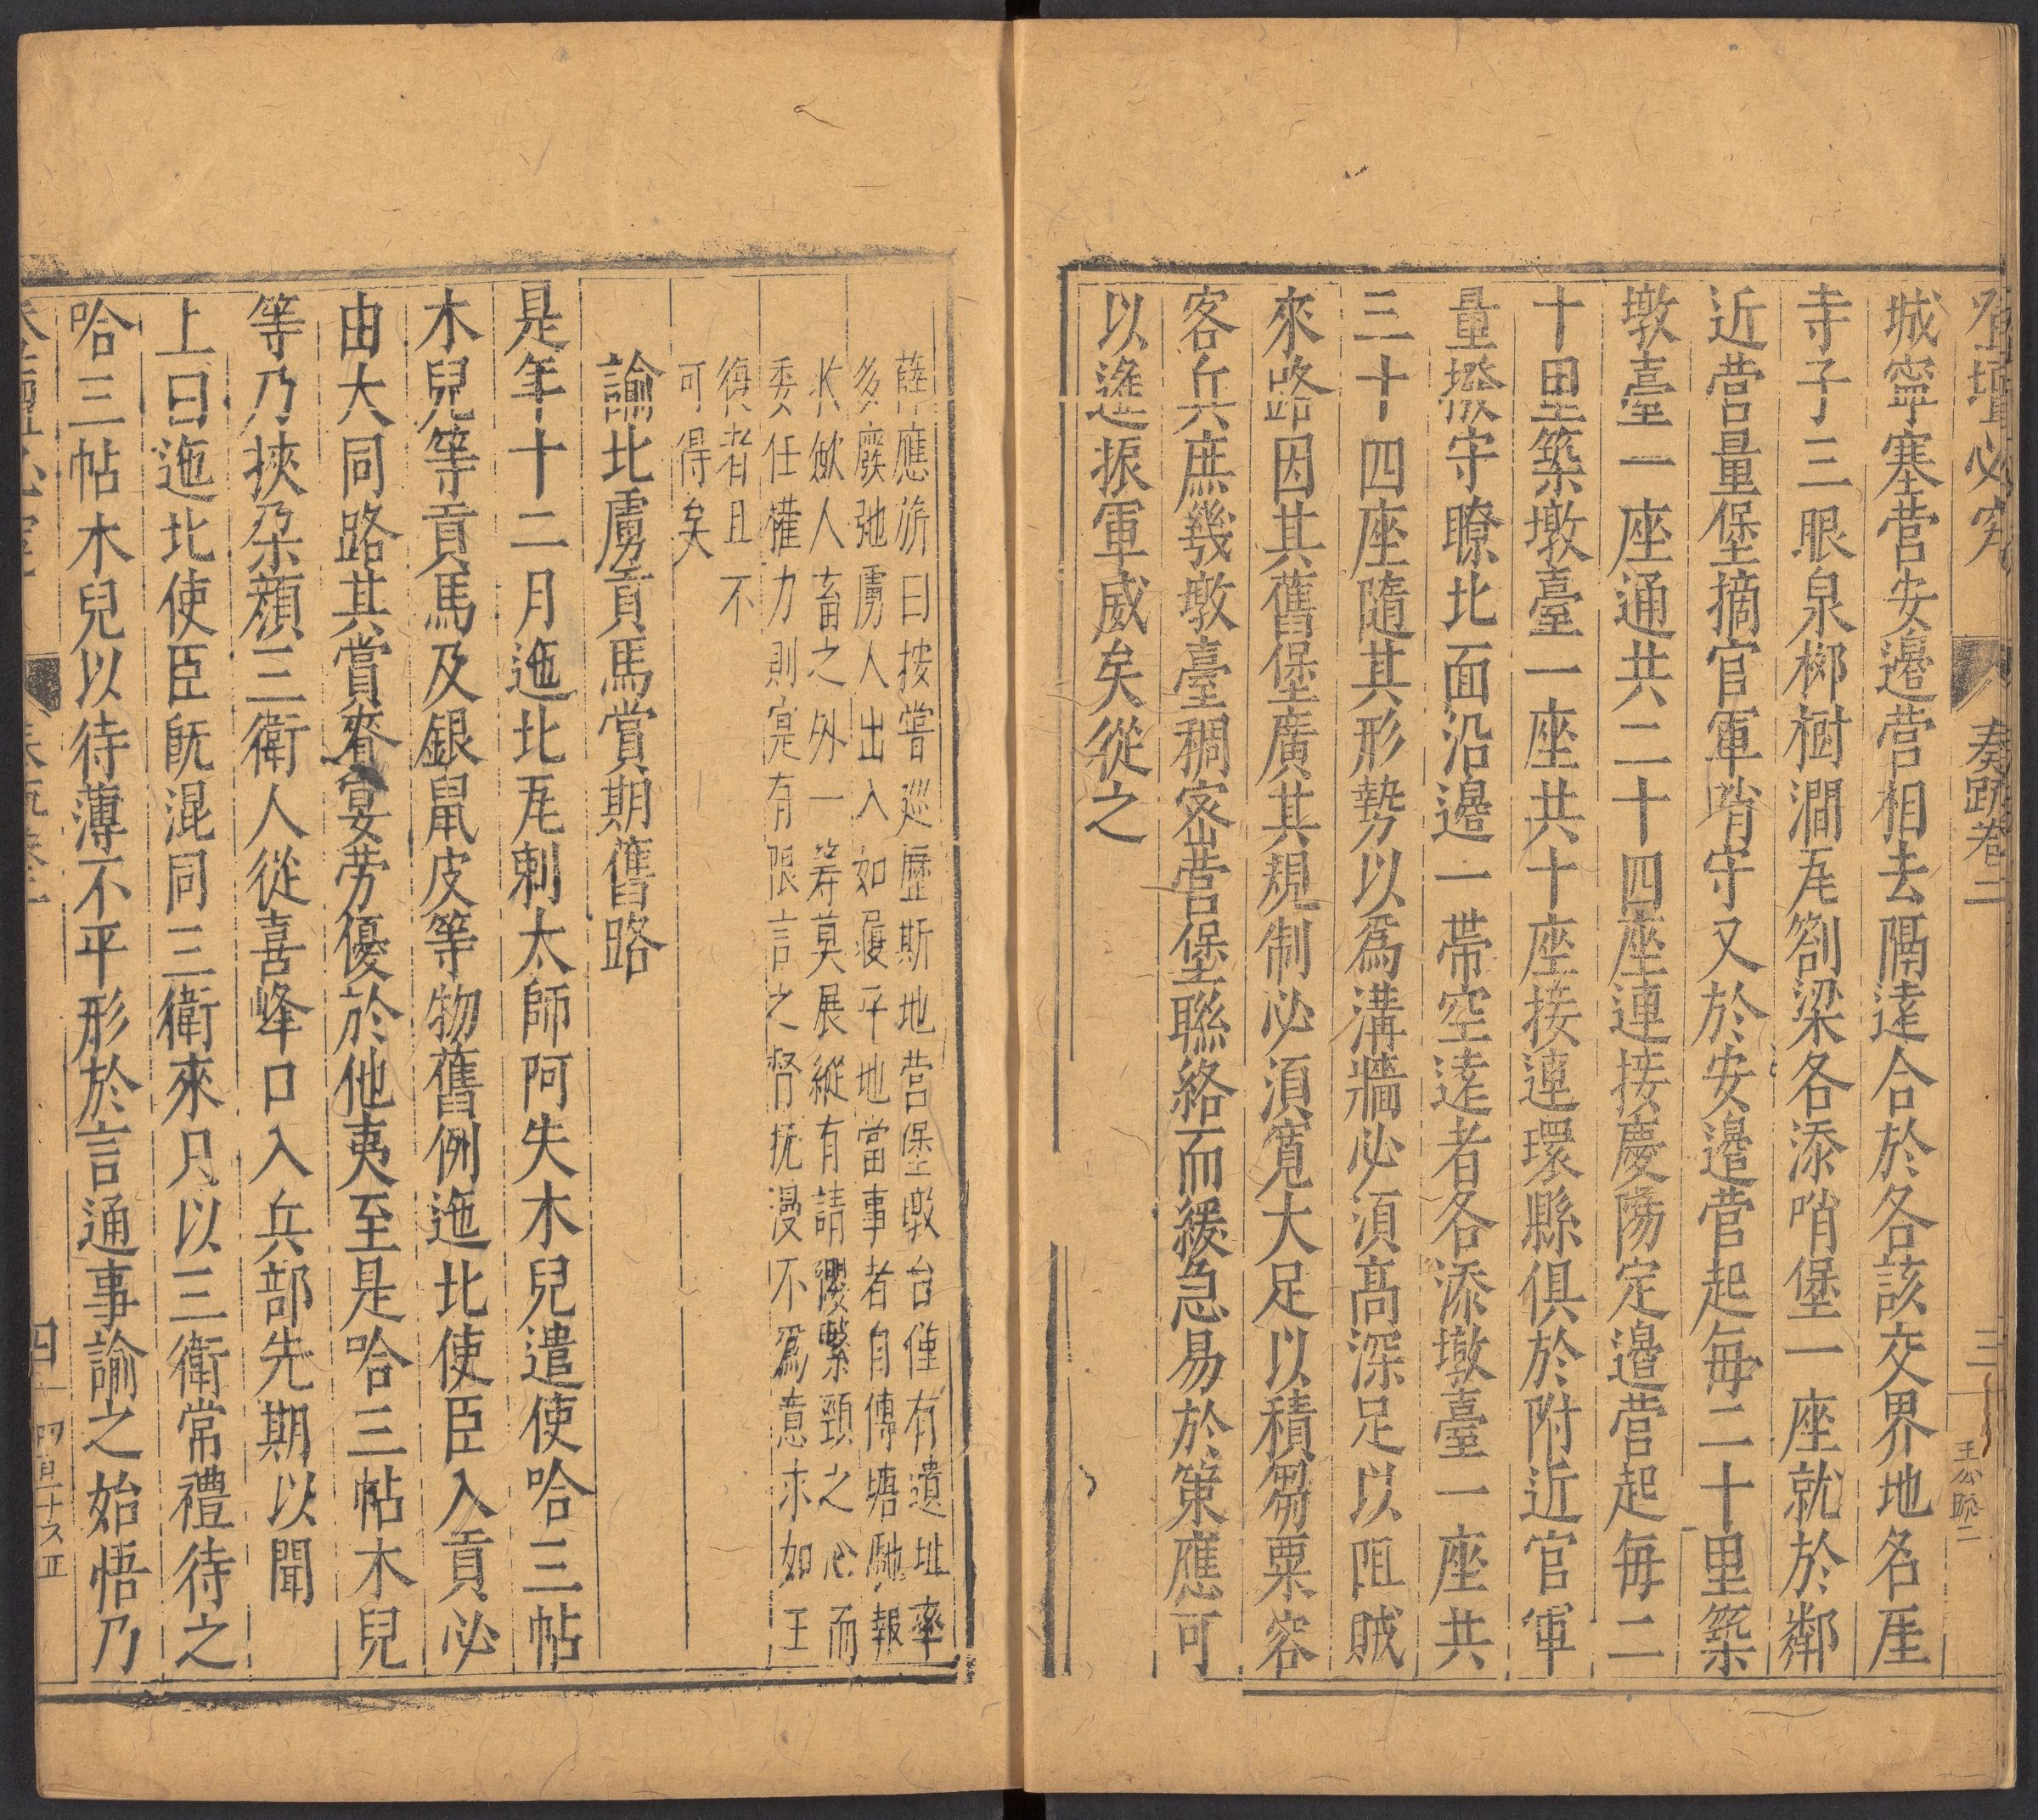 登壇必究
奏疏卷二
三
王公疏二
城寧塞营安邉营相去隔逺合於各該交界地名厓
寺子三眼泉栁樹澗瓦劄梁各添哨堡一座就於鄰
近营量堡摘官軍哨守又於安邉营起每二十里築
墩臺一座通共二十四座連接慶陽定邉营起每二
十里築墩臺一座共十座接連環縣俱於附近官軍
量撥守瞭北面沿邉一帶空逺者各添墩臺一座共
三十四座隨其形勢以爲溝墻必須髙深足以阻賊
來路因其舊堡廣其規制必須寬大足以積芻粟容
客兵庶㡬墩臺稠宻营堡聯絡而緩急易於策應可
以遙振軍威矣從之
薛應旂曰按嘗巡歷斯地营堡墩台僅有遺址率
多廢弛虜人出入如履平地當事者自傳塘馳報
收歛人畜之外一筹莫展縱有請纓繫頸之心而
委任權力則寔有限言之督撫漫不爲意求如王
復者且不
可得矣
諭北虜貢馬賞期舊路
是年十二月迤北瓦剌太師阿失木兒遣使哈三帖
木兒等貢馬及銀鼠皮等物舊例迤北使臣入貢必
由大同路其賞賚宴劳優於他夷至是哈三帖木兒
等乃挾朶顏三衛人從喜峰口入兵部先期以聞
上曰迤北使臣旣混同三衛來只以三衛常禮待之
哈三帖木兒以待薄不平形於言通事諭之始悟乃
四